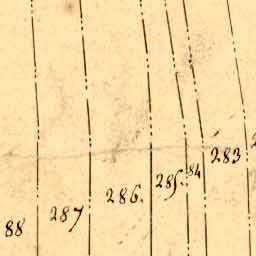 88
287
286.
285.
84
283